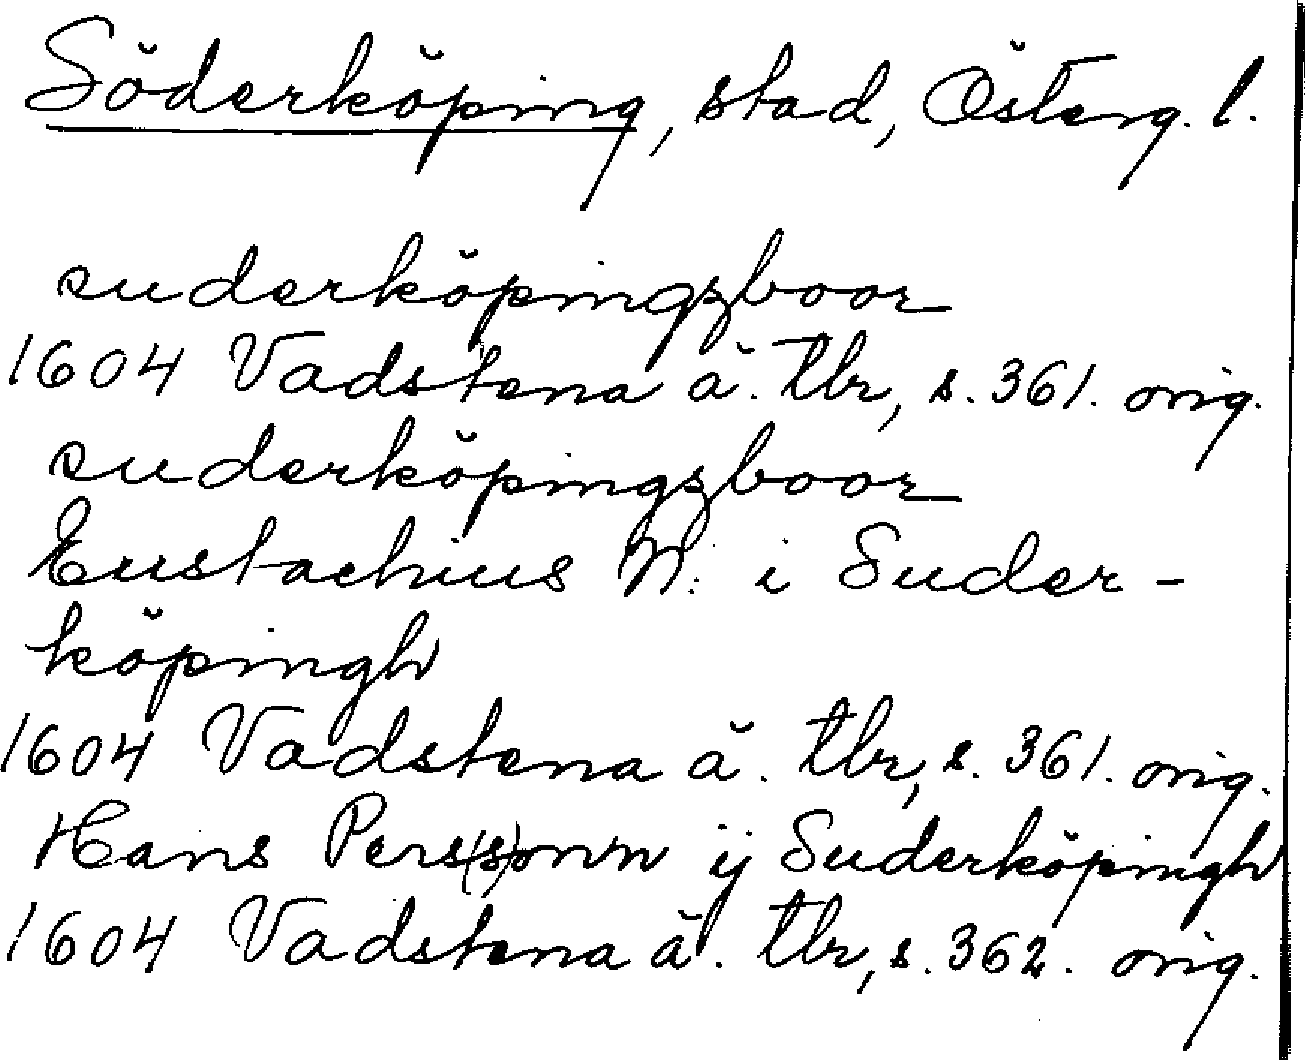 Söderköping, stad, Österg. l.
suderköpingsboor
1604 Vadstena ä. tbr, s. 361. orig.
suderköpingsboor
Eustachius N: i Suder-
köpingh
1604 Vadstena ä. tbr, s. 361. orig.
Hans Pers(s)onn ij Suderköpingh
1604 Vadstena ä. tbr, s. 362. orig.